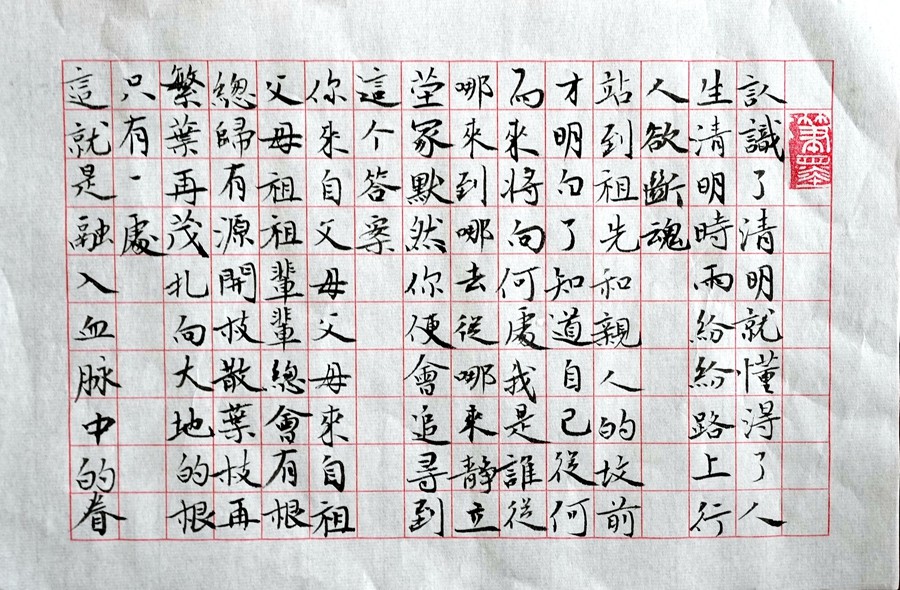 認識了清明就懂得了人
生清明時雨紛紛路上行
人欲斷魂
站到祖先和親人的坟前
才明白了知道自己従何
而来將向何處我是誰従
哪來到哪去従哪來静立
茔冢默然你便會追寻到
這个答案
你來自父母父母來自祖
父母祖祖輩輩總會有根
總歸有源開枝散葉枝再
繁葉再茂扎向大地的根
只有一處
這就是融入血脉中的眷